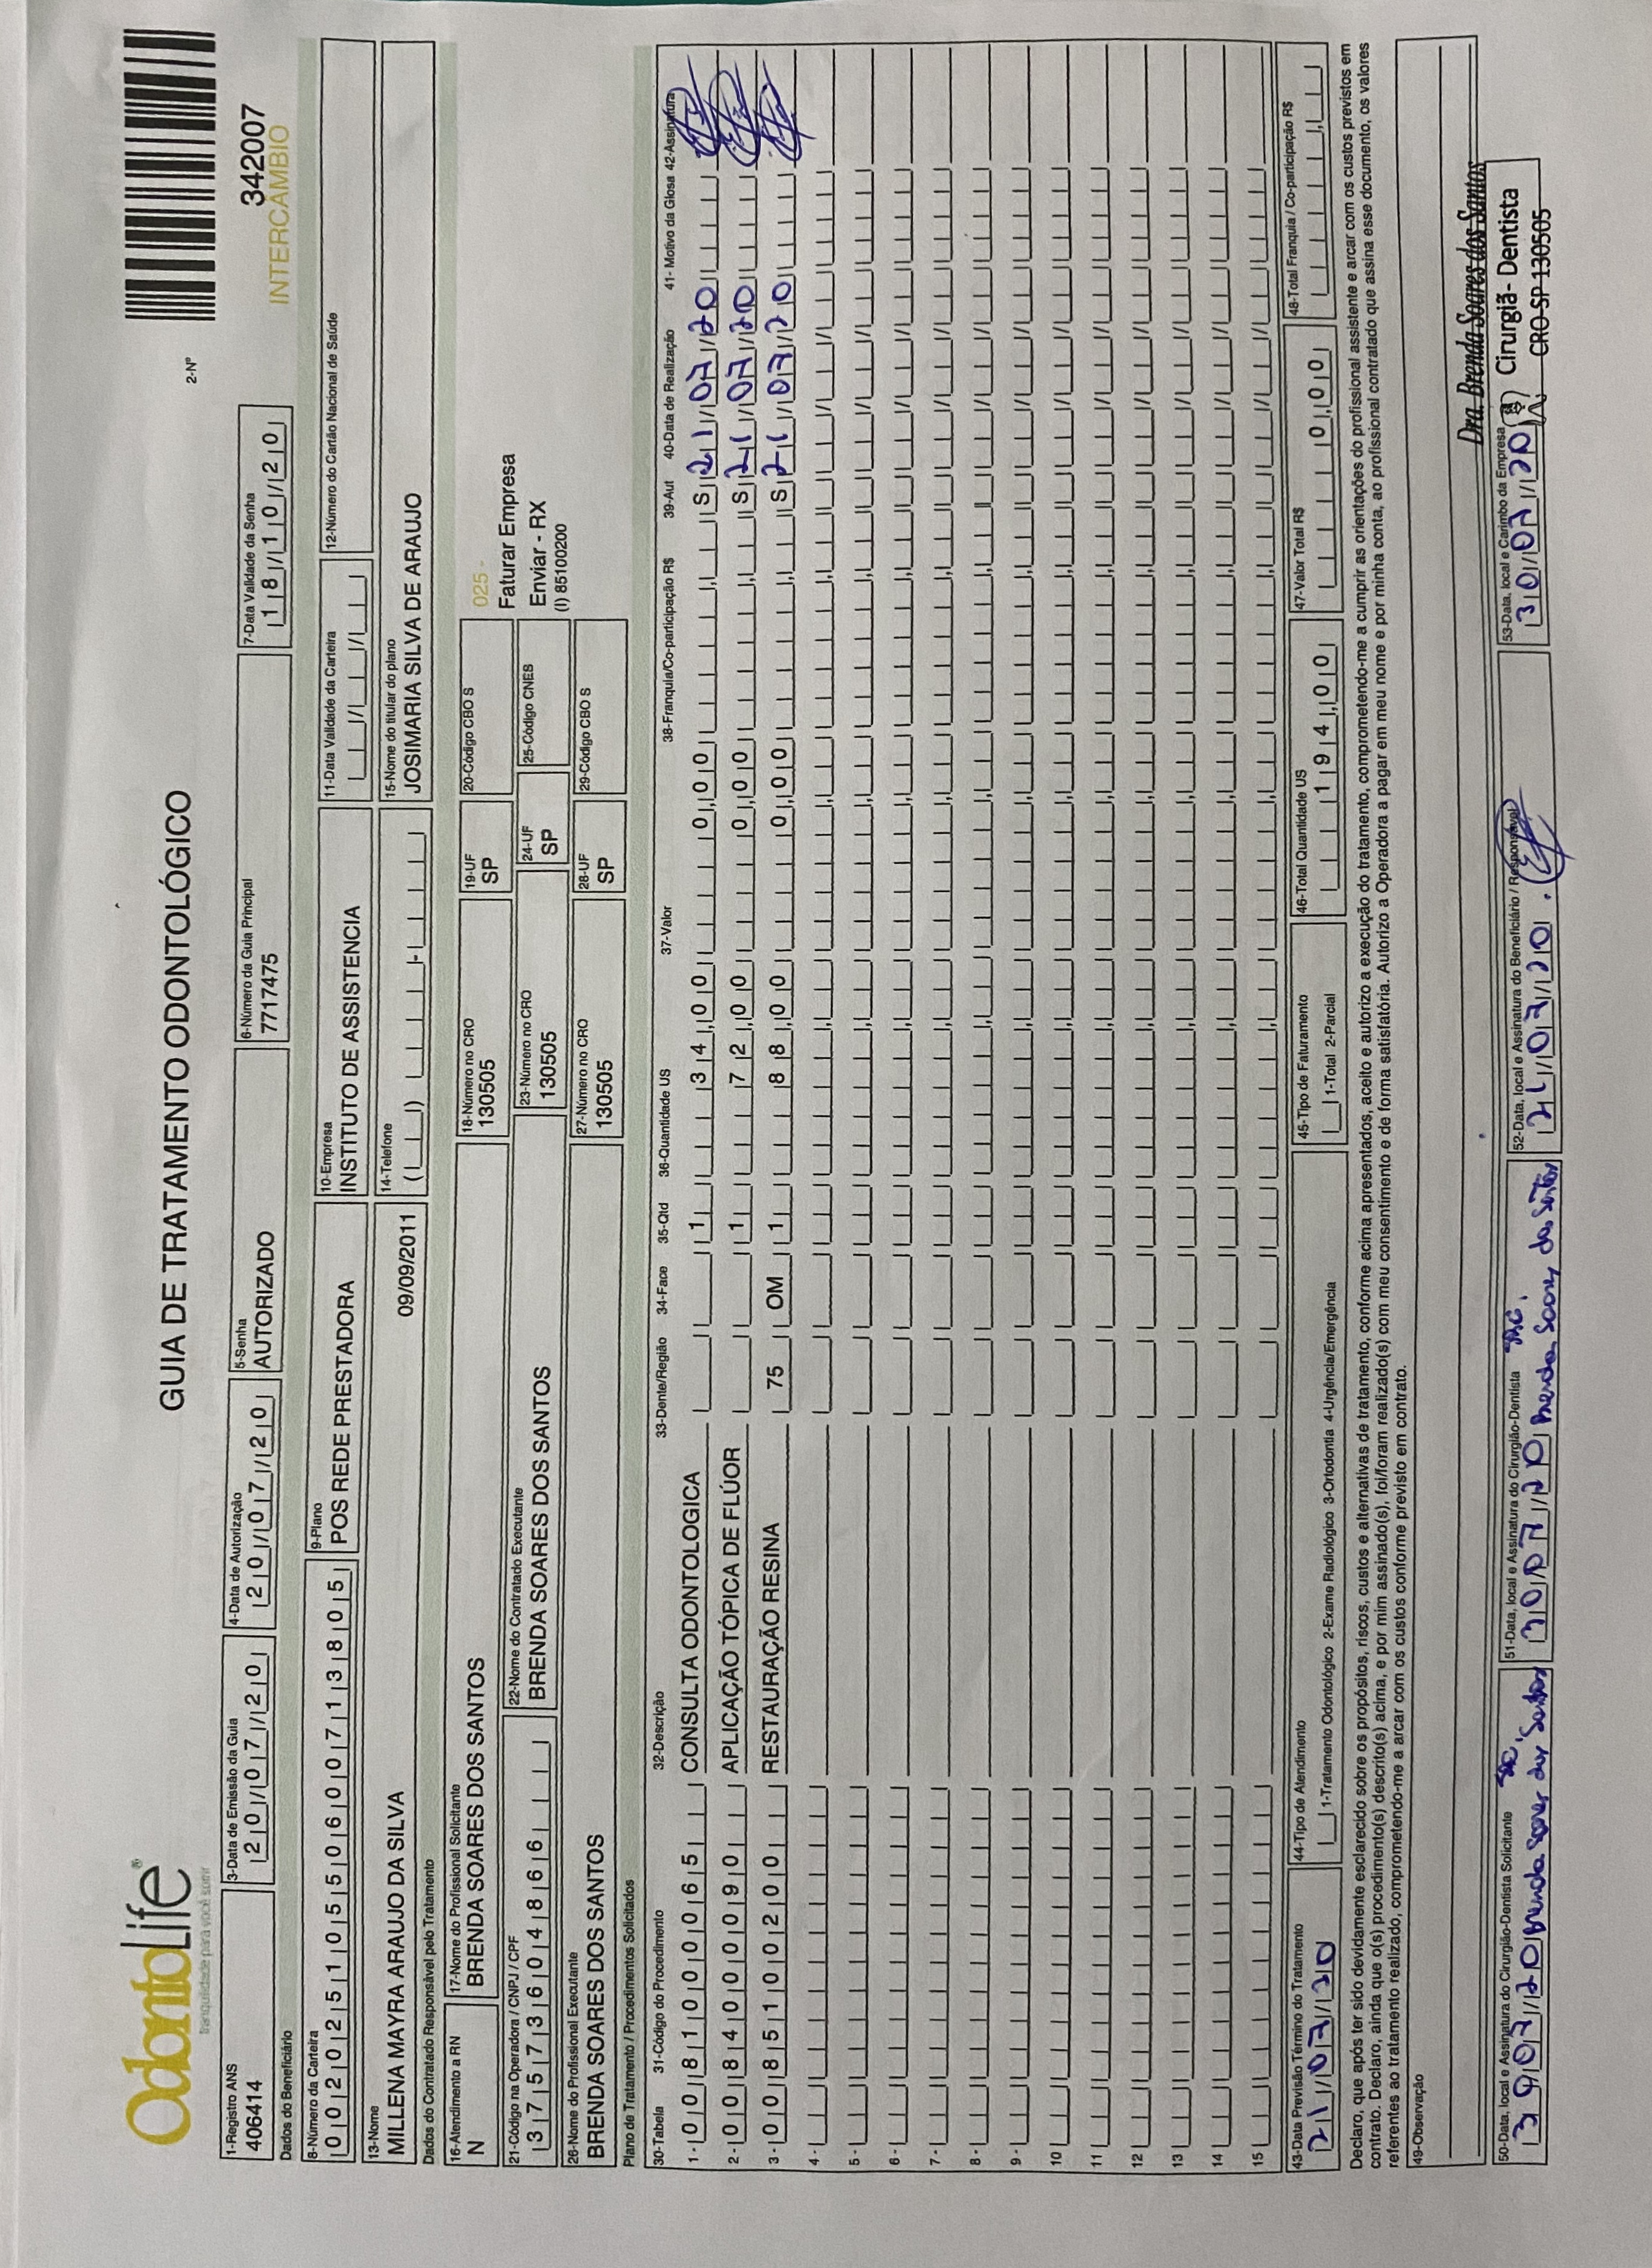 OdontoLife®
tranquilidade para você sorrir
GUIA DE TRATAMENTO ODONTOLÓGICO
2-Nº
342007
INTERCÂMBIO
1-Registro ANS
406414
3-Data de Emissão da Guia
20/07/20
4-Data de Autorização
20/07/20
5-Senha
AUTORIZADO
6-Número da Guia Principal
7717475
7-Data Validade da Senha
18/10/20
Dados do Beneficiário
8-Número da Carteira
00202510550600713805
9-Plano
POS REDE PRESTADORA
10-Empresa
INSTITUTO DE ASSISTENCIA
11-Data Validade da Carteira
12-Número do Cartão Nacional de Saúde
13-Nome
MILLENA MAYRA ARAUJO DA SILVA
09/09/2011
14-Telefone
15-Nome do titular do plano
JOSIMARIA SILVA DE ARAUJO
Dados do Contratado Responsável pelo Tratamento
16-Atendimento a RN
N
17-Nome do Profissional Solicitante
BRENDA SOARES DOS SANTOS
18-Número no CRO
130505
19-UF
SP
20-Código CBO S
025 -
Faturar Empresa
Enviar - RX
(I) 85100200
21-Código na Operadora / CNPJ / CPF
37573604866
22-Nome do Contratado Executante
BRENDA SOARES DOS SANTOS
23-Número no CRO
130505
24-UF
SP
25-Código CNES
26-Nome do Profissional Executante
BRENDA SOARES DOS SANTOS
27-Número no CRO
130505
28-UF
SP
29-Código CBO S
Plano de Tratamento / Procedimentos Solicitados
30-Tabela 31-Código do Procedimento 32-Descrição 33-Dente/Região 34-Face 35-Qtd 36-Quantidade US 37-Valor 38-Franquia/Co-participação R$ 39-Aut 40-Data de Realização 41- Motivo da Glosa 42-Assinatura
1 - 00 81000065 CONSULTA ODONTOLOGICA 1 34,00 0,00 S 21/07/20
2 - 00 84000090 APLICAÇÃO TÓPICA DE FLÚOR 1 72,00 0,00 S 21/07/20
3 - 00 85100200 RESTAURAÇÃO RESINA 75 OM 1 88,00 0,00 S 21/07/20
4 -
5 -
6 -
7 -
8 -
9 -
10
11
12
13
14
15
43-Data Previsão Término do Tratamento
21/07/20
44-Tipo de Atendimento
1-Tratamento Odontológico 2-Exame Radiológico 3-Ortodontia 4-Urgência/Emergência
45-Tipo de Faturamento
1-Total 2-Parcial
46-Total Quantidade US
194,00
47-Valor Total R$
0,00
48-Total Franquia / Co-participação R$
Declaro, que após ter sido devidamente esclarecido sobre os propósitos, riscos, custos e alternativas de tratamento, conforme acima apresentados, aceito e autorizo a execução do tratamento, comprometendo-me a cumprir as orientações do profissional assistente e arcar com os custos previstos em
contrato. Declaro, ainda que o(s) procedimento(s) descrito(s) acima, e por mim assinado(s), foi/foram realizado(s) com meu consentimento e de forma satisfatória. Autorizo a Operadora a pagar em meu nome e por minha conta, ao profissional contratado que assina esse documento, os valores
referentes ao tratamento realizado, comprometendo-me a arcar com os custos conforme previsto em contrato.
49-Observação
50-Data, local e Assinatura do Cirurgião-Dentista Solicitante
30/07/20 Brenda Soares dos Santos
51-Data, local e Assinatura do Cirurgião-Dentista
30/07/20 Brenda Soares dos Santos
52-Data, local e Assinatura do Beneficiário / Responsável
21/07/20
53-Data, local e Carimbo da Empresa
30/07/20
Dra. Brenda Soares dos Santos
Cirurgiã- Dentista
CRO-SP 130505